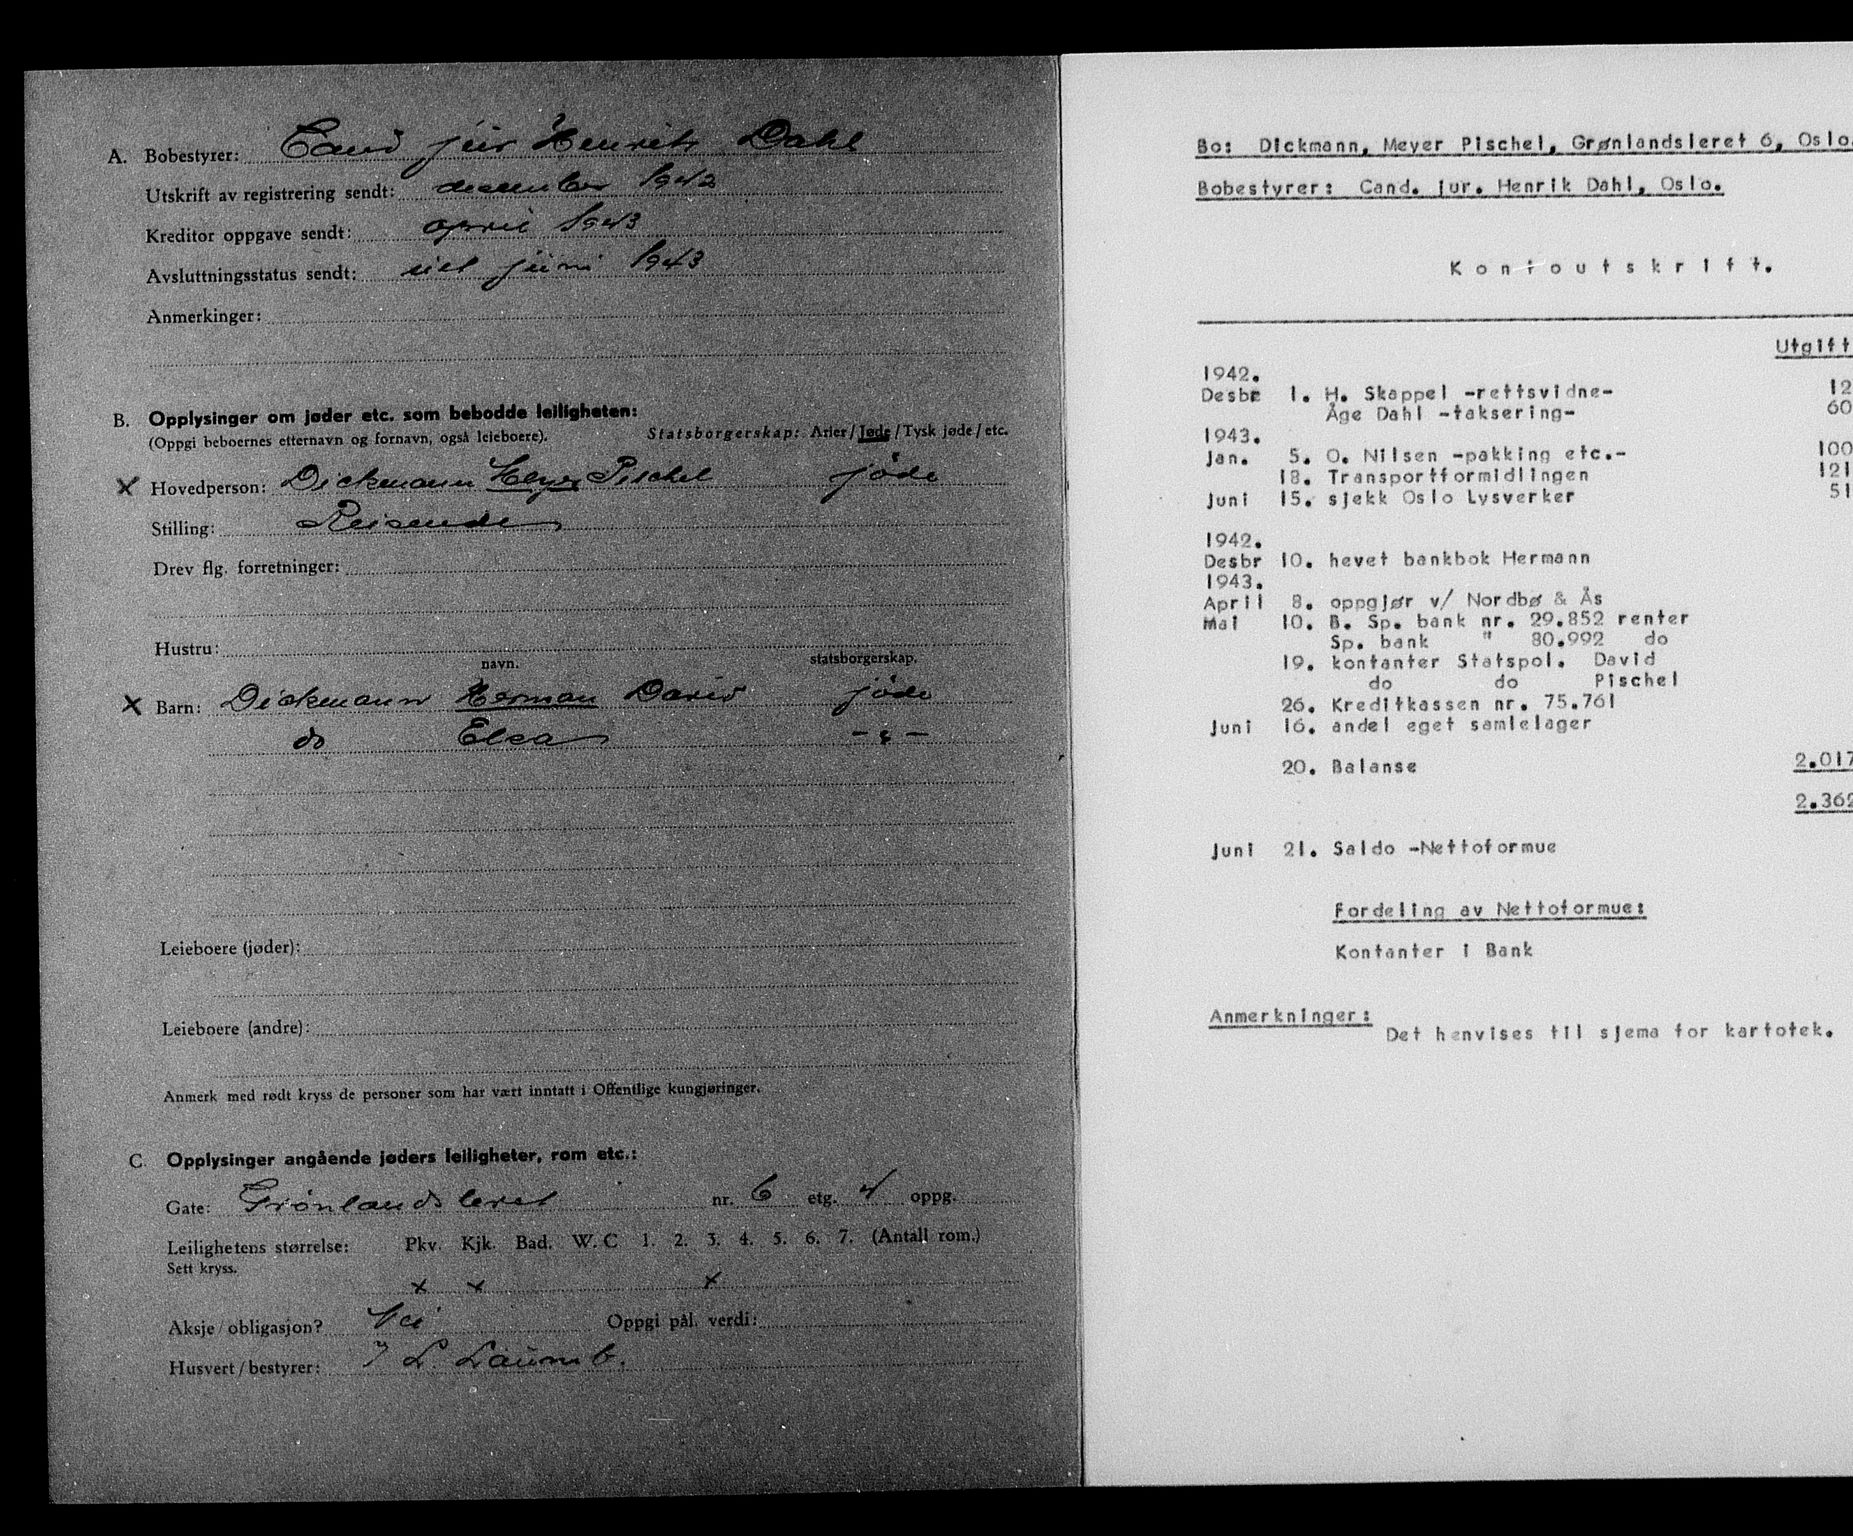 A. Bobestyrer: Cand jur Henrik Dahl
Utskrift av registrering sendt: desember 1942
Kreditor oppgave sendt: april 1943
Avsluttningsstatus sendt: juni 1943
Anmerkinger:
B. Opplysinger om jøder etc. som bebodde leiligheten:
(Oppgi beboernes etternavn og fornavn, også leieboere). Statsborgerskap: Arier/Jøde/Tysk jøde/etc.
x Hovedperson: Dickmann Meyer Pischel jøde
Stilling: Reisende
Drev flg. forretninger:
Hustru:
navn. statsborgerskap.
x Barn: Dickmann Herman David jøde
do Elsa - " -
Leieboere (jøder):
Leieboere (andre):
Anmerk med rødt kryss de personer som har vært inntatt i Offentlige kungjøringer.
C. Opplysinger angående jøders leiligheter, rom etc.:
Gate: Grönlandsleret nr. 6 etg. 4 oppg.
Leilighetens størrelse: Pkv. Kjk. Bad. W.C 1. 2. 3. 4. 5. 6. 7. (Antall rom.)
Sett kryss.
x x x
Aksje/obligasjon? Nei Oppgi pål. verdi:
Husvert/bestyrer: L.
Bo: Dickmann, Meyer Pischel, Grønlandsleret 6, Oslo.
Bobestyrer: Cand. jur. Henrik Dahl, Oslo.
Kontoutskrift.
Utgift
1942.
Desbr 1. H. Skappel -rettsvidne- 12
Åge Dahl -taksering- 60
1943.
Jan. 5. O. Nilsen -pakking etc.- 100
18. Transportformidlingen 121
Juni 15. sjekk Oslo Lysverker 51
1942.
Desbr 10. hevet bankbok Hermann
1943.
April 8. oppgjør v/ Nordbø & Ås
Mai 10. B. Sp. bank nr. 29.852 renter
Sp. bank " 80.992 do
19. kontanter Statspol. David
do do Pischel
26. Kreditkassen nr. 75.761
Juni 16. andel eget samlelager
20. Balanse 2.017
2.362
Juni 21. Saldo -Nettoformue
Fordeling av Nettoformue:
Kontanter i Bank
Anmerkninger:
Det henvises til sjema for kartotek.